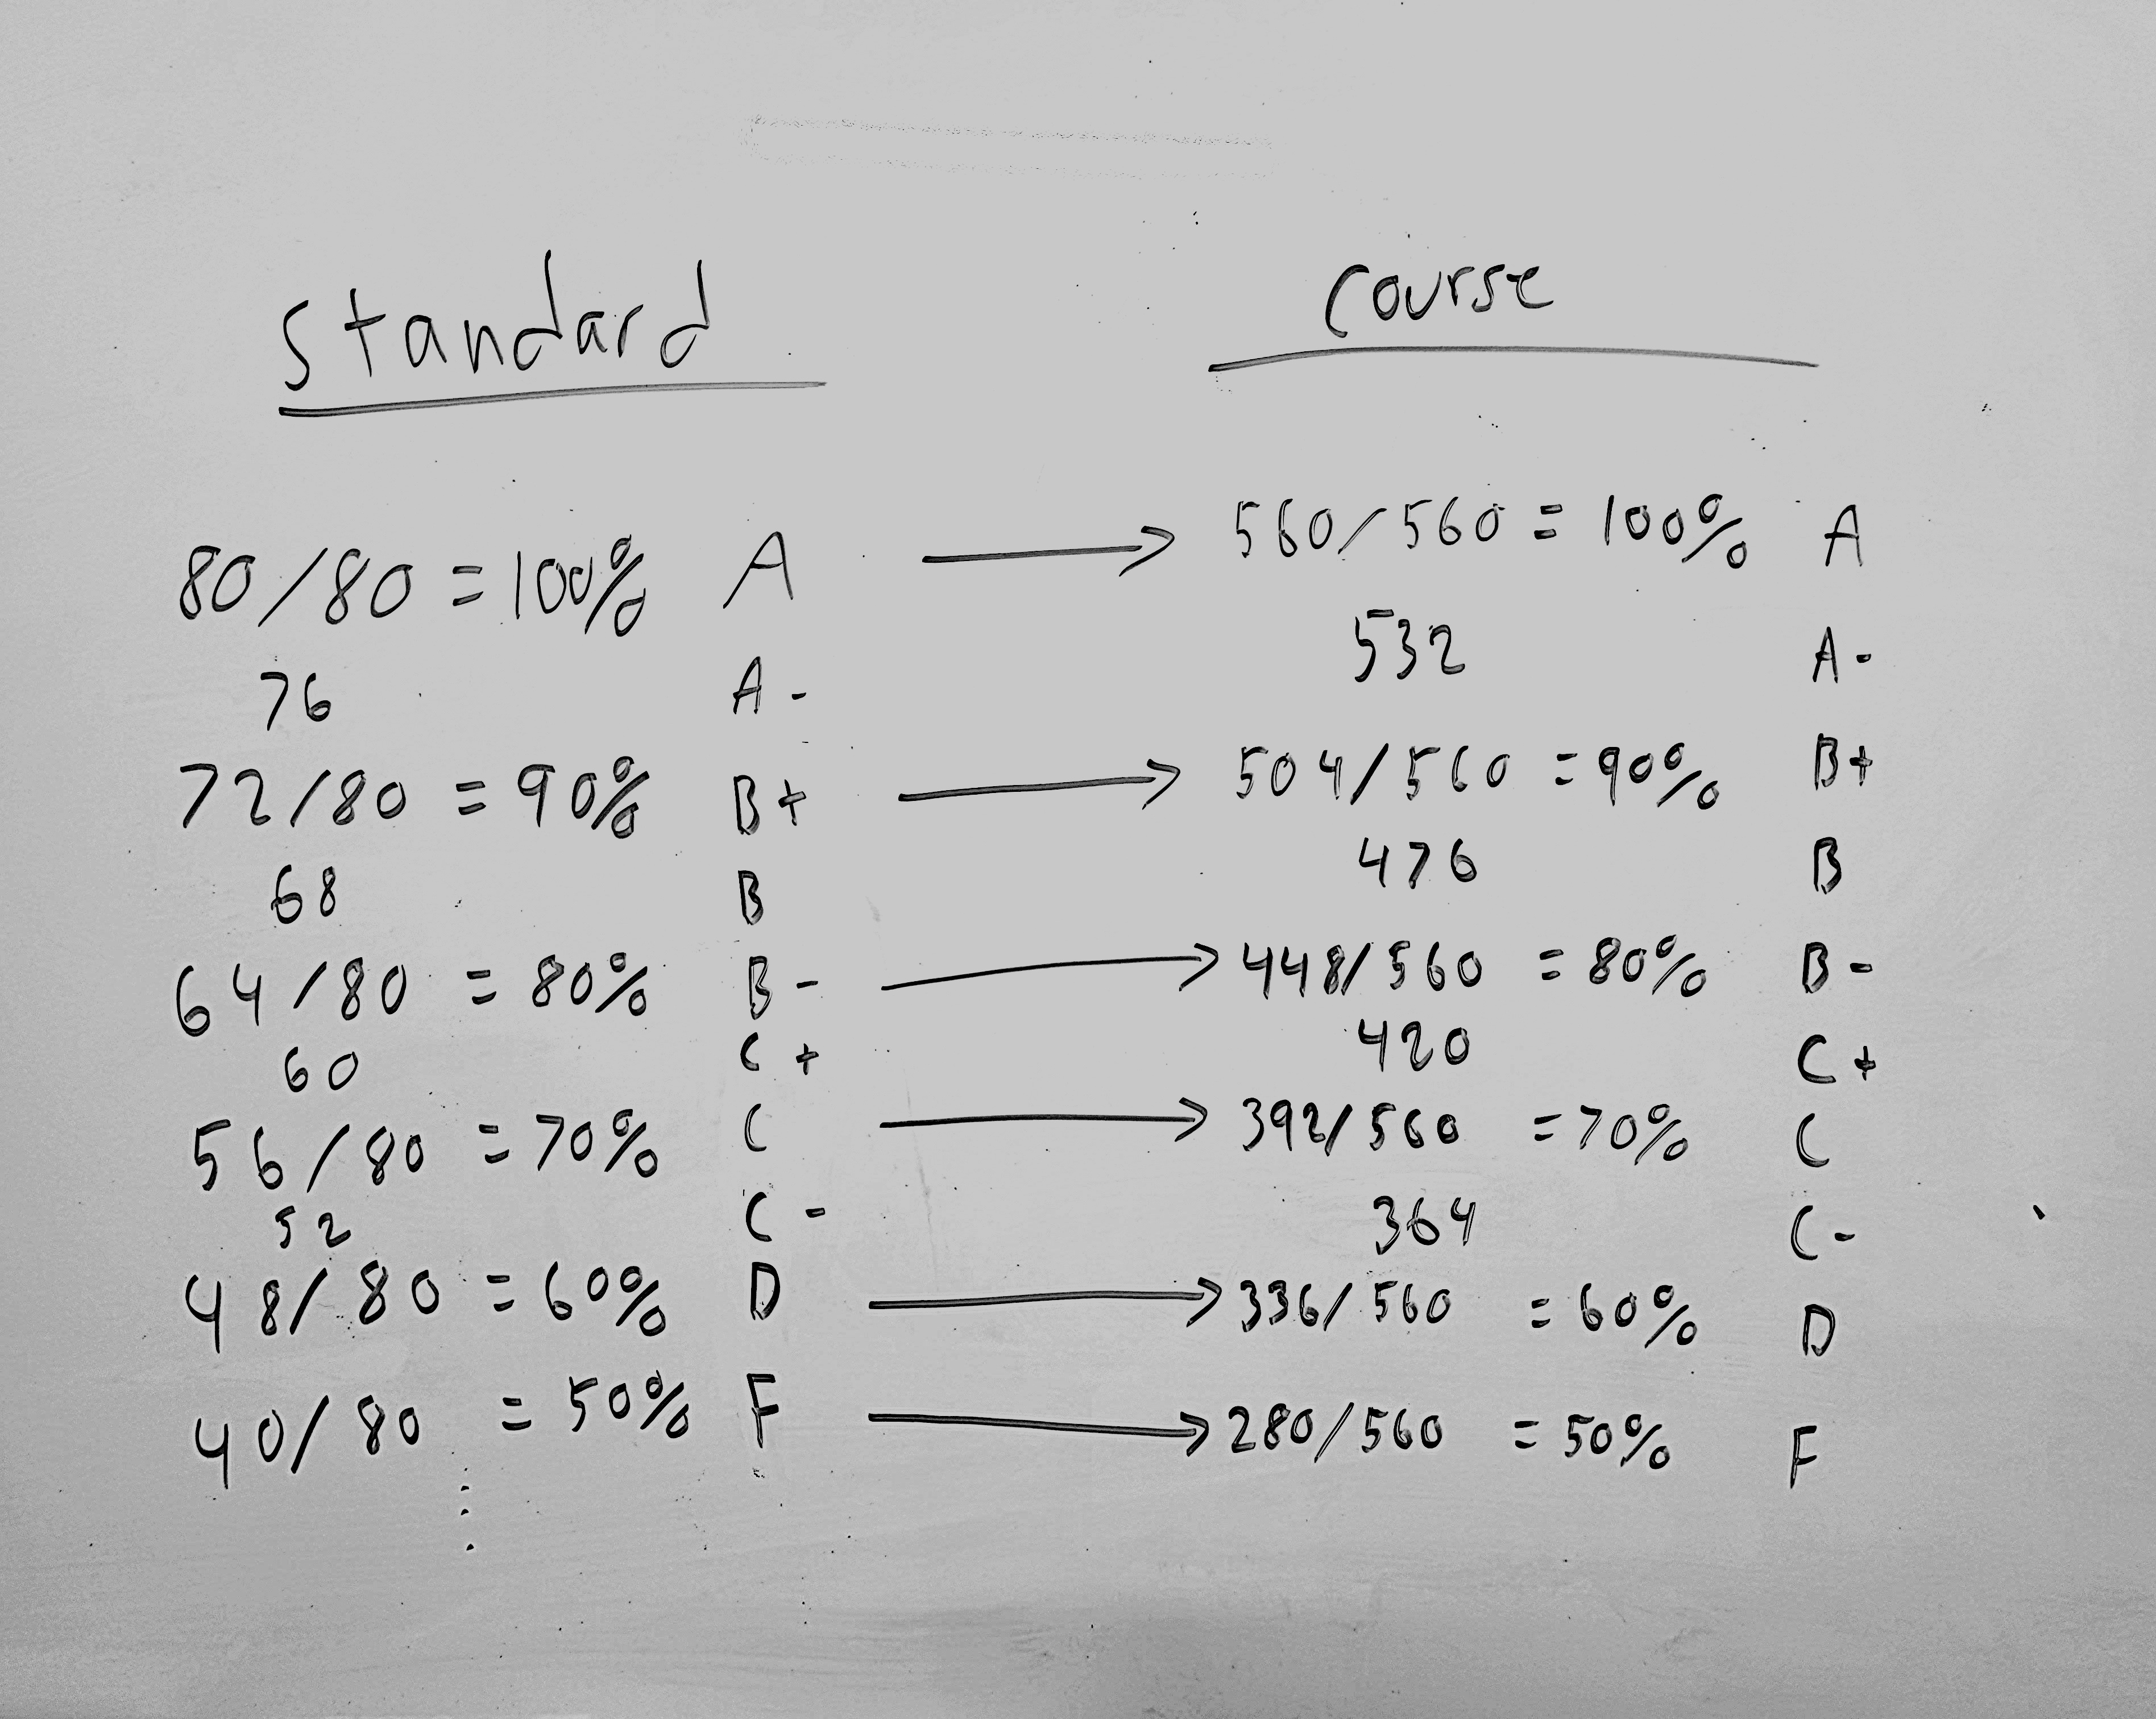 Standard Course
80/80 = 100% A → 560/560 = 100% A
76 A- 532 A-
72/80 = 90% B+ → 504/560 = 90% B+
68 B 476 B
64/80 = 80% B- → 448/560 = 80% B-
60 C+ 420 C+
56/80 = 70% C → 392/560 = 70% C
52 C- 364 C-
48/80 = 60% D → 336/560 = 60% D
40/80 = 50% F → 280/560 = 50% F
⋮